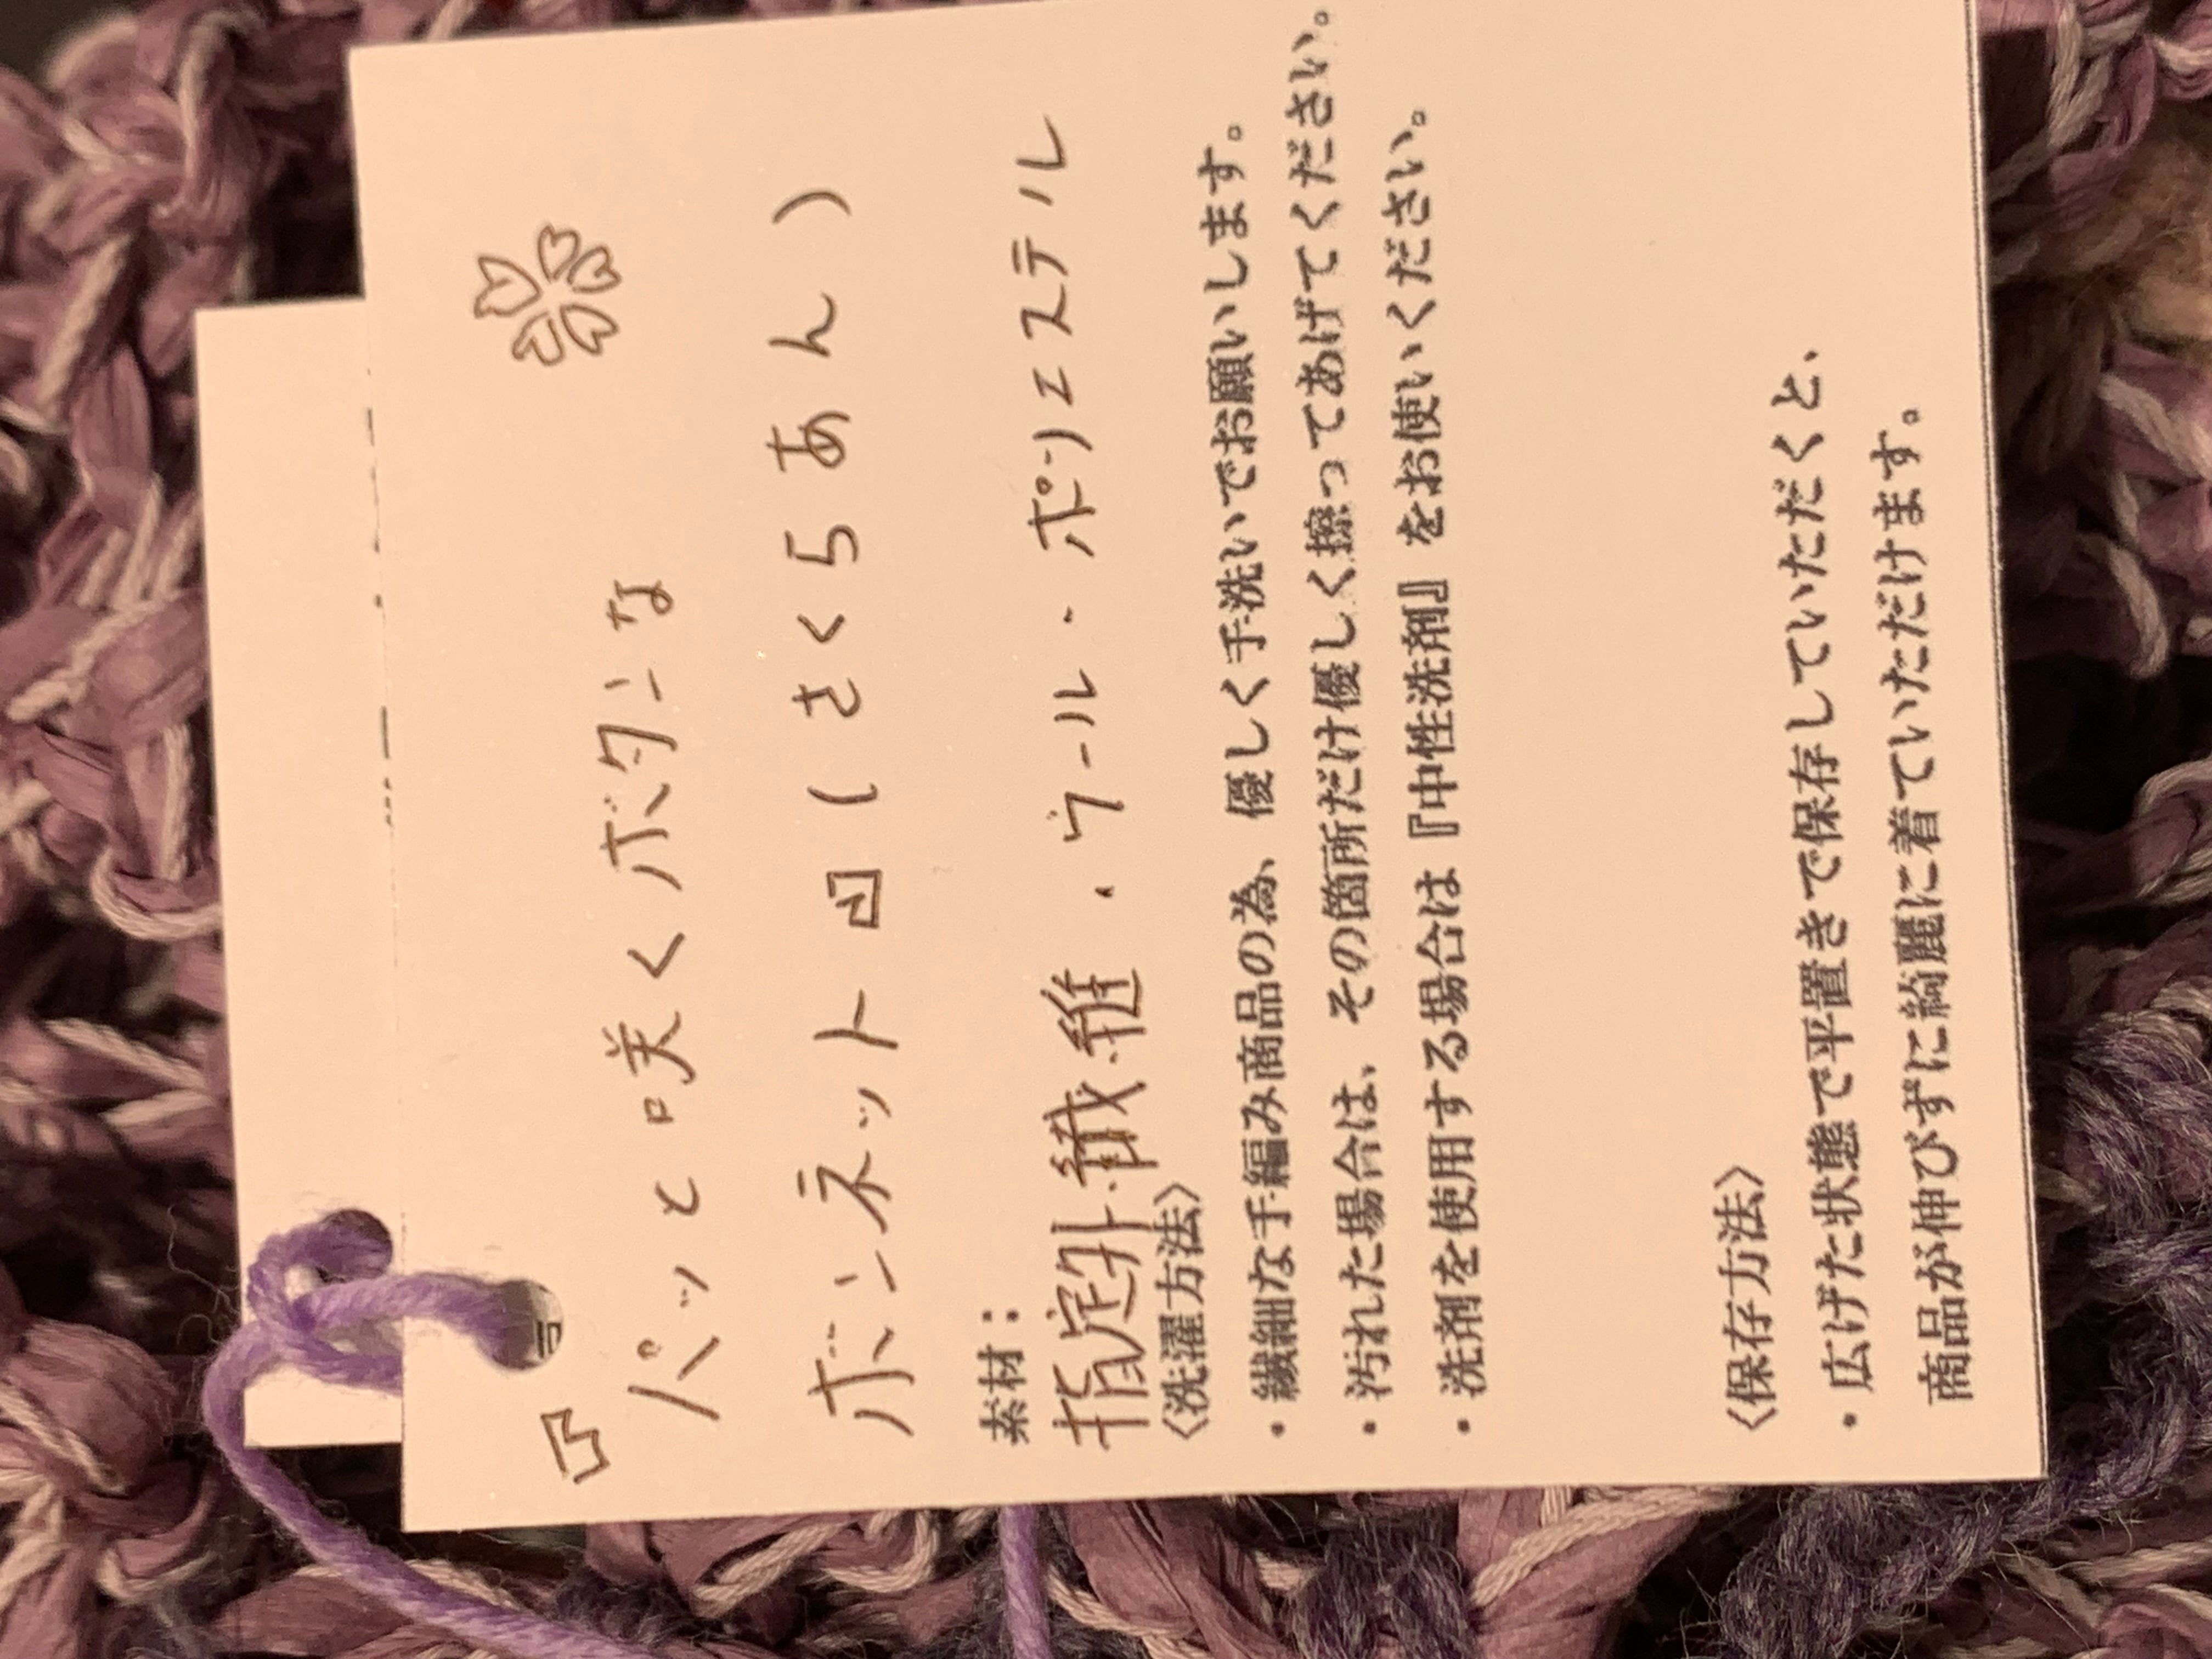 パッと咲くボタンな
ボンネット凹(さくらあん)
素材：
指定外繊維・ウール・ポリエステル
〈洗濯方法〉
・繊細な手編み商品の為、優しく手洗いでお願いします。
・汚れた場合は、その箇所だけ優しく擦ってあげてください。
・洗剤を使用する場合は『中性洗剤』をお使いください。
〈保存方法〉
・広げた状態で平置きで保存していただくと、
商品が伸びずに綺麗に着ていただけます。